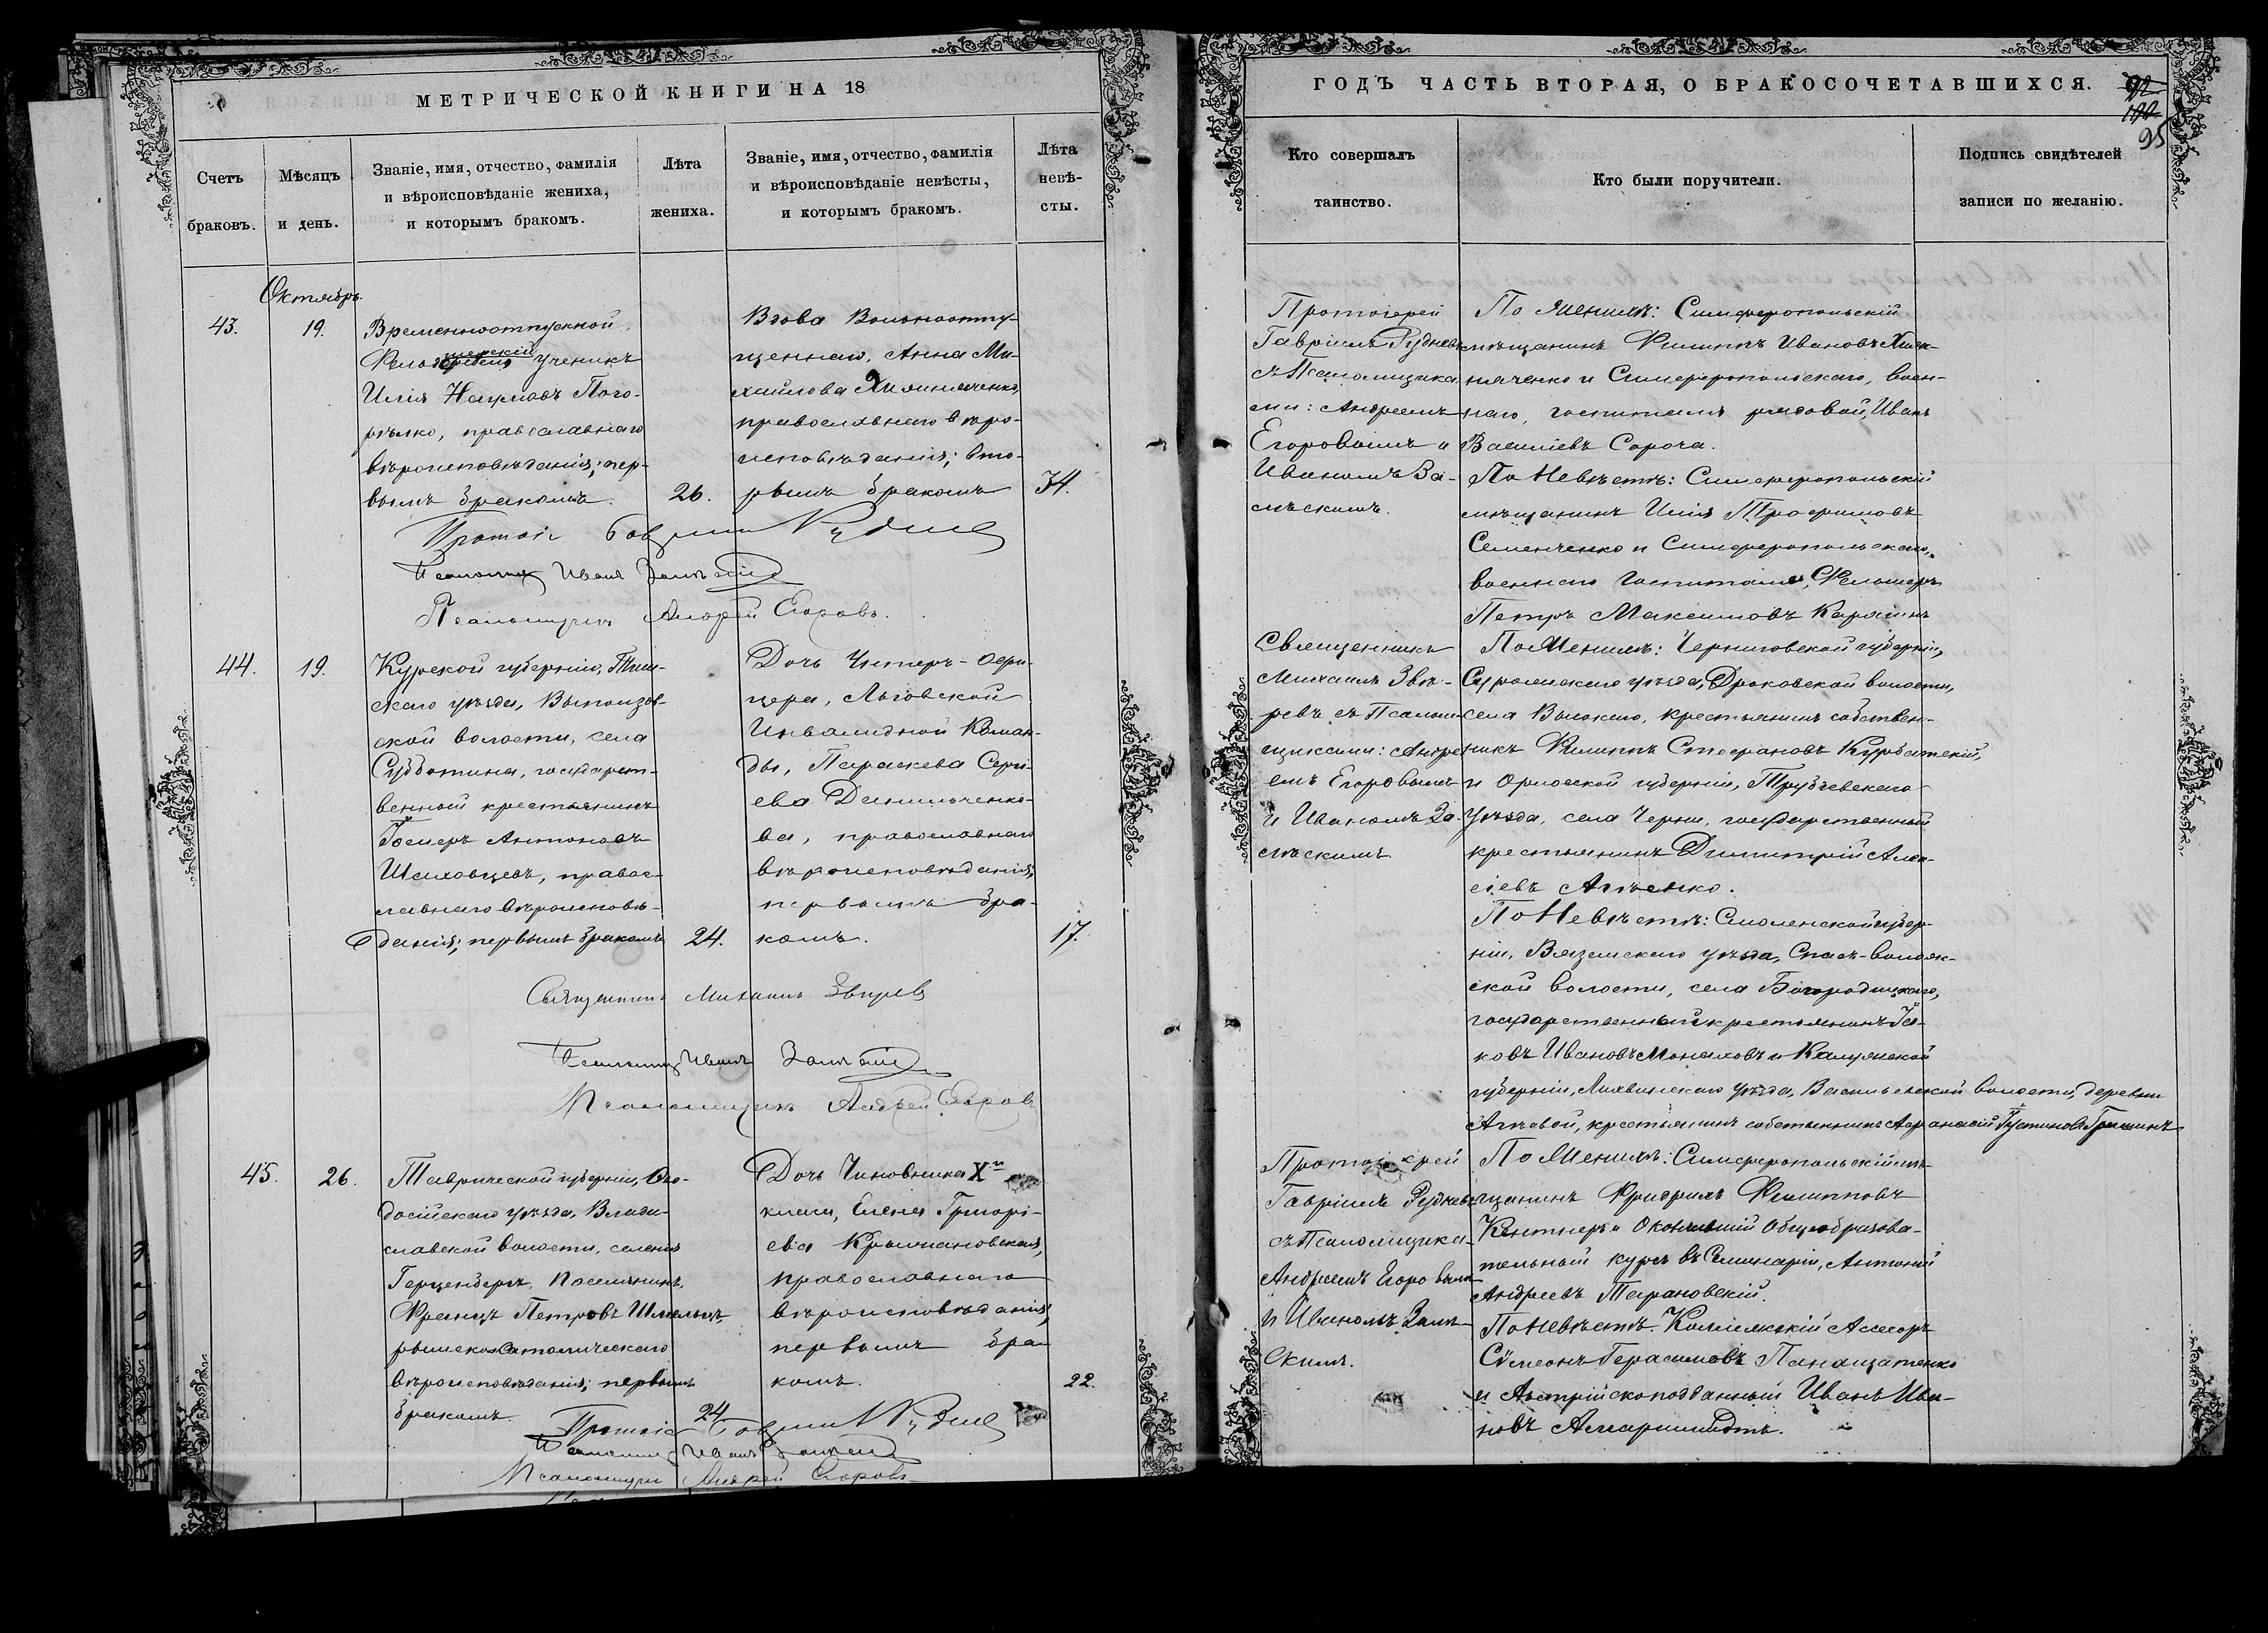 МЕТРИЧЕСКОЙ КНИГИ НА 18
Счетъ
браковъ.
Мѣсяцъ
и день.
Званіе, имя, отчество, фамилія
и вѣроисповѣданіе жениха,
и которымъ бракомъ.
Лѣта
жениха.
Званіе, имя, отчество, фамилія
и вѣроисповѣданіе невѣсты,
и которымъ бракомъ.
Лѣта
невѣ-
сты.
Октябрь.
43.
19.
Временноотпускной
ученикъ
Илія Наумовъ Пого-
рѣлко, православнаго
вѣроисповѣданія; пер-
вымъ бракомъ.
26.
Вдова Вольноотпу-
щеннаго, Анна Ми-
хайлова
православнаго вѣро-
исповѣданія; вто-
рымъ бракомъ
34.
Протоіе Гавріилъ Рудневъ
Псаломщ Иванъ
Псаломщикъ Андрей Егоровъ.
44.
19.
Курской губерніи, Тим-
скаго уѣзда,
ской волости, села
Субботина, государст-
венный крестьянинъ
Антоновъ
Шаховцевъ, правос-
лавнаго вѣроисповѣ-
данія; первымъ бракомъ
24.
Дочь Унтеръ-офи-
цера, Льговской
Инвалидной Коман-
ды, Параскева Серги-
ева Данильченко-
ва, православнаго
вѣроисповѣданія;
первымъ бра-
комъ.
17.
Священникъ Михаилъ Звѣревъ
Псаломщ Иванъ
Псаломщикъ Андрей Егоровъ
45.
26.
Таврической губерніи, Ѳео-
досійскаго уѣзда, Влади-
славской волости, селенія
Герценбергъ, Поселянинъ,
Францъ Петровъ Шмельцъ,
римско-католическаго
вѣроисповѣданія; первымъ
бракомъ.
24
Дочь Чиновника Xго
класса, Елена Григорі-
ева Крыжановская,
православнаго
вѣроисповѣданія;
первымъ бра-
комъ.
22.
Протоіе Гавріилъ Рудневъ
Псаломщ Иванъ
Псаломщикъ Андрей Егоровъ
ГОДЪ ЧАСТЬ ВТОРАЯ, О БРАКОСОЧЕТАВШИХСЯ.
95
Кто совершалъ
таинство.
Кто были поручители.
Подпись свидѣтелей
записи по желанію.
Протоіерей
Гавріилъ Рудневъ
съ Псаломщика-
ми: Андреемъ
Егоровымъ и
Иваномъ За-
мѣскимъ.
По Женихѣ: Симферопольскій
мѣщанинъ Филиппъ Ивановъ
и Симферопольскаго, воен-
наго, госпиталя рядовой, Иванъ
Василіевъ Сорока.
По Невѣстѣ: Симферопольскій
мѣщанинъ Илія Трофимовъ
Семенченко и Симферопольскаго,
военнаго госпиталя, Фельдшеръ
Петръ Максимовъ Карягинъ
Священникъ
Михаилъ Звѣ-
ревъ съ Псалом-
щиками: Андре-
емъ Егоровымъ
и Иваномъ За-
мѣскимъ
По Женихѣ: Черниговской губерніи,
Суражскаго уѣзда, Дроковской волости,
села Высокаго, крестьянинъ собствен-
никъ Филиппъ Стефановъ Курбатскій,
и Орловской губерніи, Трубчевскаго
уѣзда, села Черни, государственный
крестьянинъ Димитрій Алек-
сіевъ
По Невѣстѣ: Смоленской губер-
ніи, Вяземскаго уѣзда, Спасъ-волож-
ской волости, села Богородицкаго,
государственный крестьянинъ Іа-
ковъ Ивановъ Монаховъ и Калужской
губерніи, Лихвинскаго уѣзда, Васильевской волости, деревни
крестьянинъ собственникъ Афанасій Іустиновъ Гришинъ
Протоіерей
Гавріилъ Рудневъ
съ Псаломщика-
Андреемъ Егоровымъ
и Иваномъ Замѣ-
скимъ.
По Женихѣ: Симферопольскій мѣ-
щанинъ Фридрихъ Филипповъ
Кентнеръ и Окончившій Общеобразова-
тельный курсъ въ Семинаріи, Антоній
Андреевъ Тарановскій.
По Невѣстѣ: Коллежскій Ассесоръ
Сѵмеонъ Герасимовъ Панащатенко
и Австрійскоподданный Иванъ Ива-
новъ